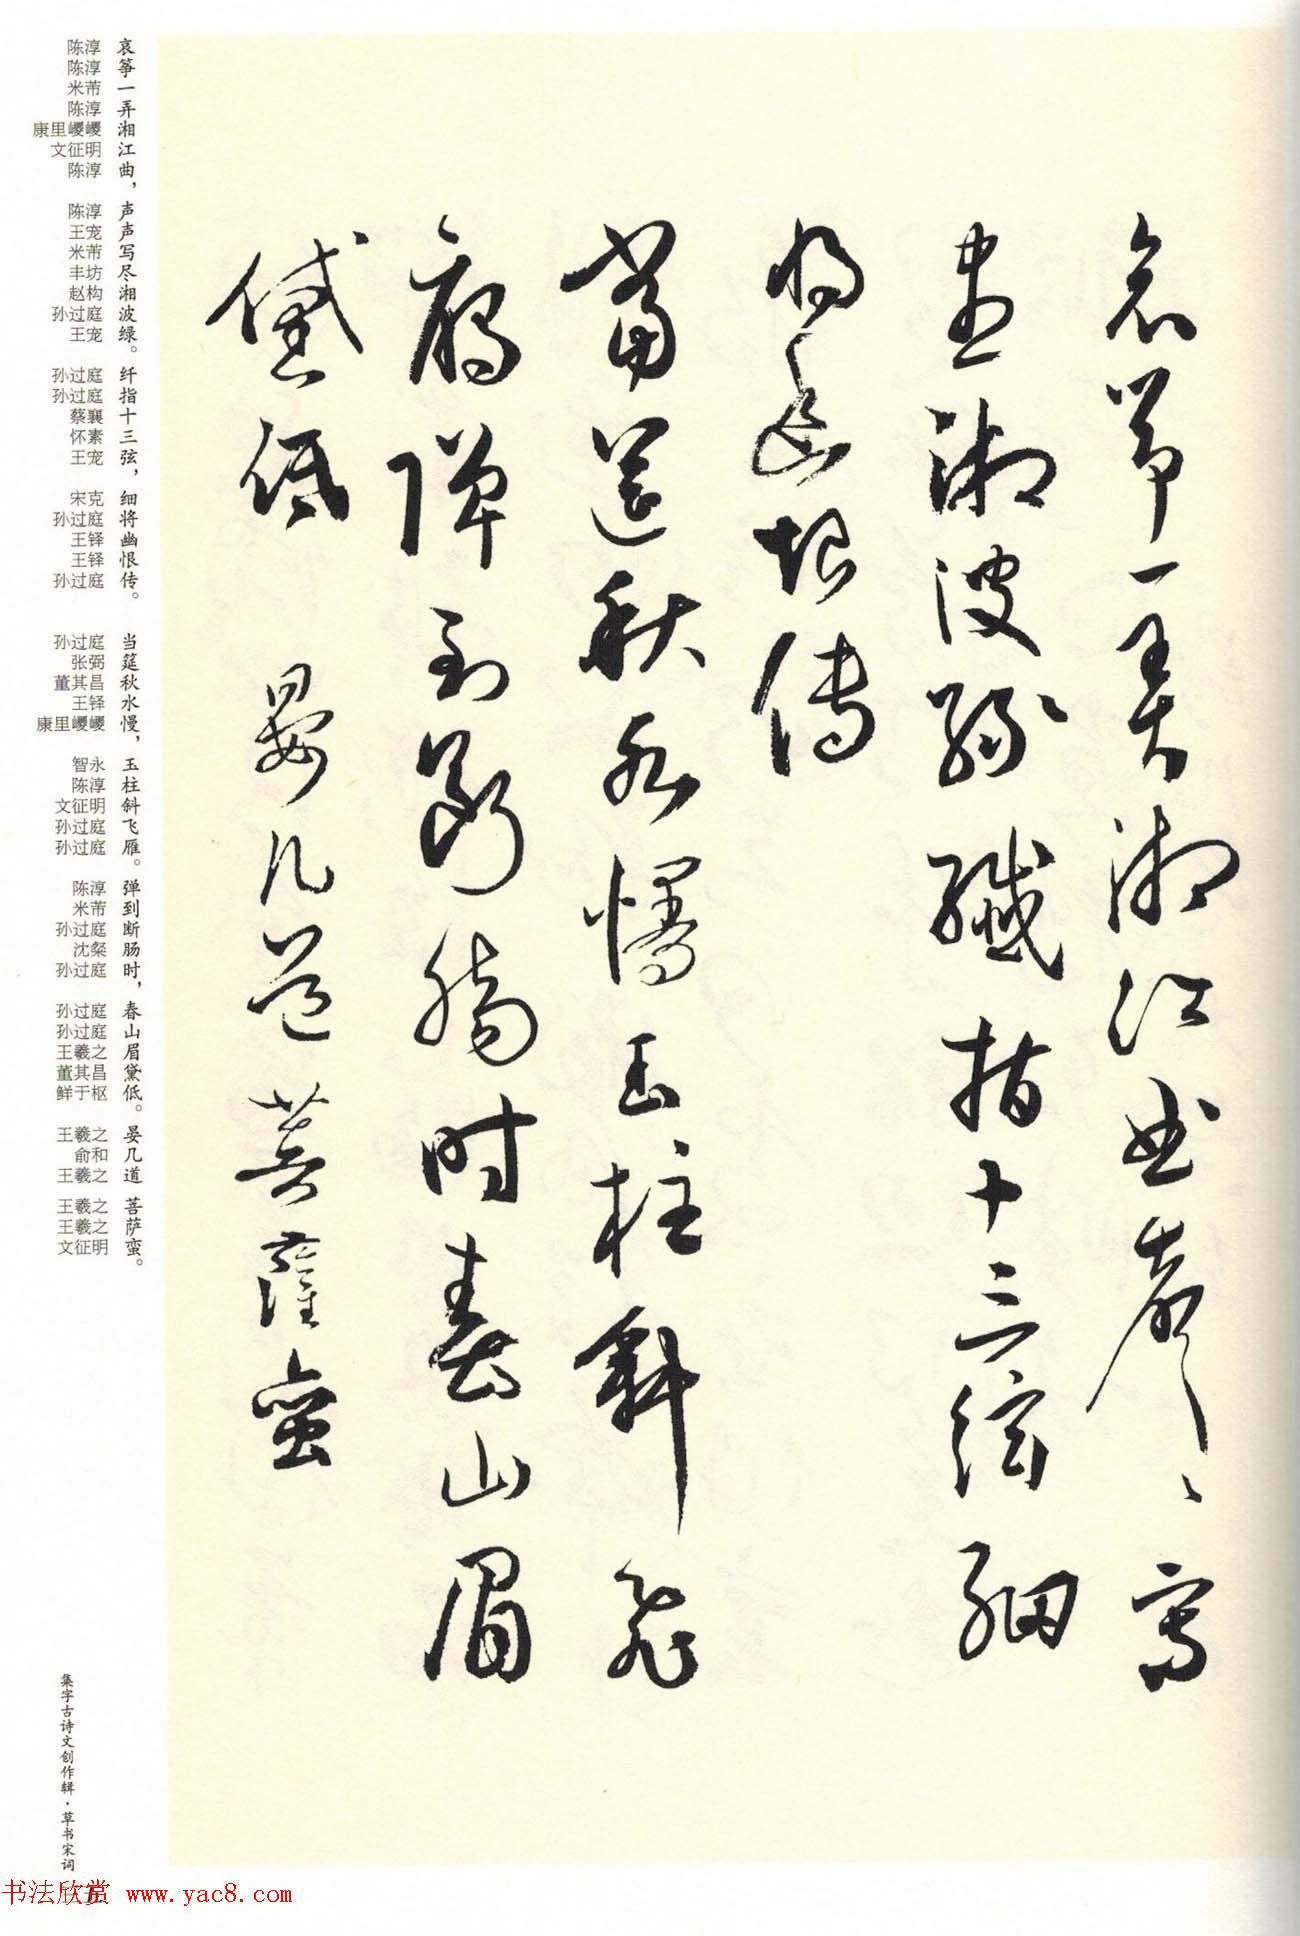 哀筝一弄湘江曲声〻写
尽湘波绿纤指十三弦细
将幽恨传
当筵秋水慢玉柱斜飞
雁弹到断肠时春山眉
黛低 晏几道菩萨蛮
陈淳 哀
陈淳 筝
米芾 一
陈淳 弄
康里巎巎 湘
文征明 江
陈淳 曲，
陈淳 声
王宠 声
米芾 写
丰坊 尽
赵构 湘
孙过庭 波
王宠 绿。
孙过庭 纤
孙过庭 指
蔡襄 十
怀素 三
王宠 弦，
宋克 细
孙过庭 将
王铎 幽
王铎 恨
孙过庭 传。
孙过庭 当
张弼 筵
董其昌 秋
王铎 水
康里巎巎 慢，
智永 玉
陈淳 柱
文征明 斜
孙过庭 飞
孙过庭 雁。
陈淳 弹
米芾 到
孙过庭 断
沈粲 肠
孙过庭 时，
孙过庭 春
孙过庭 山
王羲之 眉
董其昌 黛
鲜于枢 低。
王羲之 晏
俞和 几
王羲之 道
王羲之 菩
王羲之 萨
文征明 蛮。
集字古诗文创作辑·草书宋词
书法欣赏 www.yac8.com